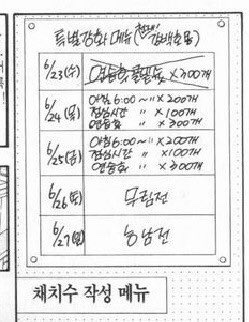 특별강화 메뉴
6/23(수) 연습후 골밑슛 X300개
6/24(목) 아침 6:00~ 〃 X200개
점심시간 〃 X100개
연습후 〃 X300개
6/25(금) 아침 6:00~ 〃 X200개
점심시간 〃 X100개
연습후 〃 X300개
6/26(토) 무림전
6/27(일) 능남전
채치수 작성 메뉴